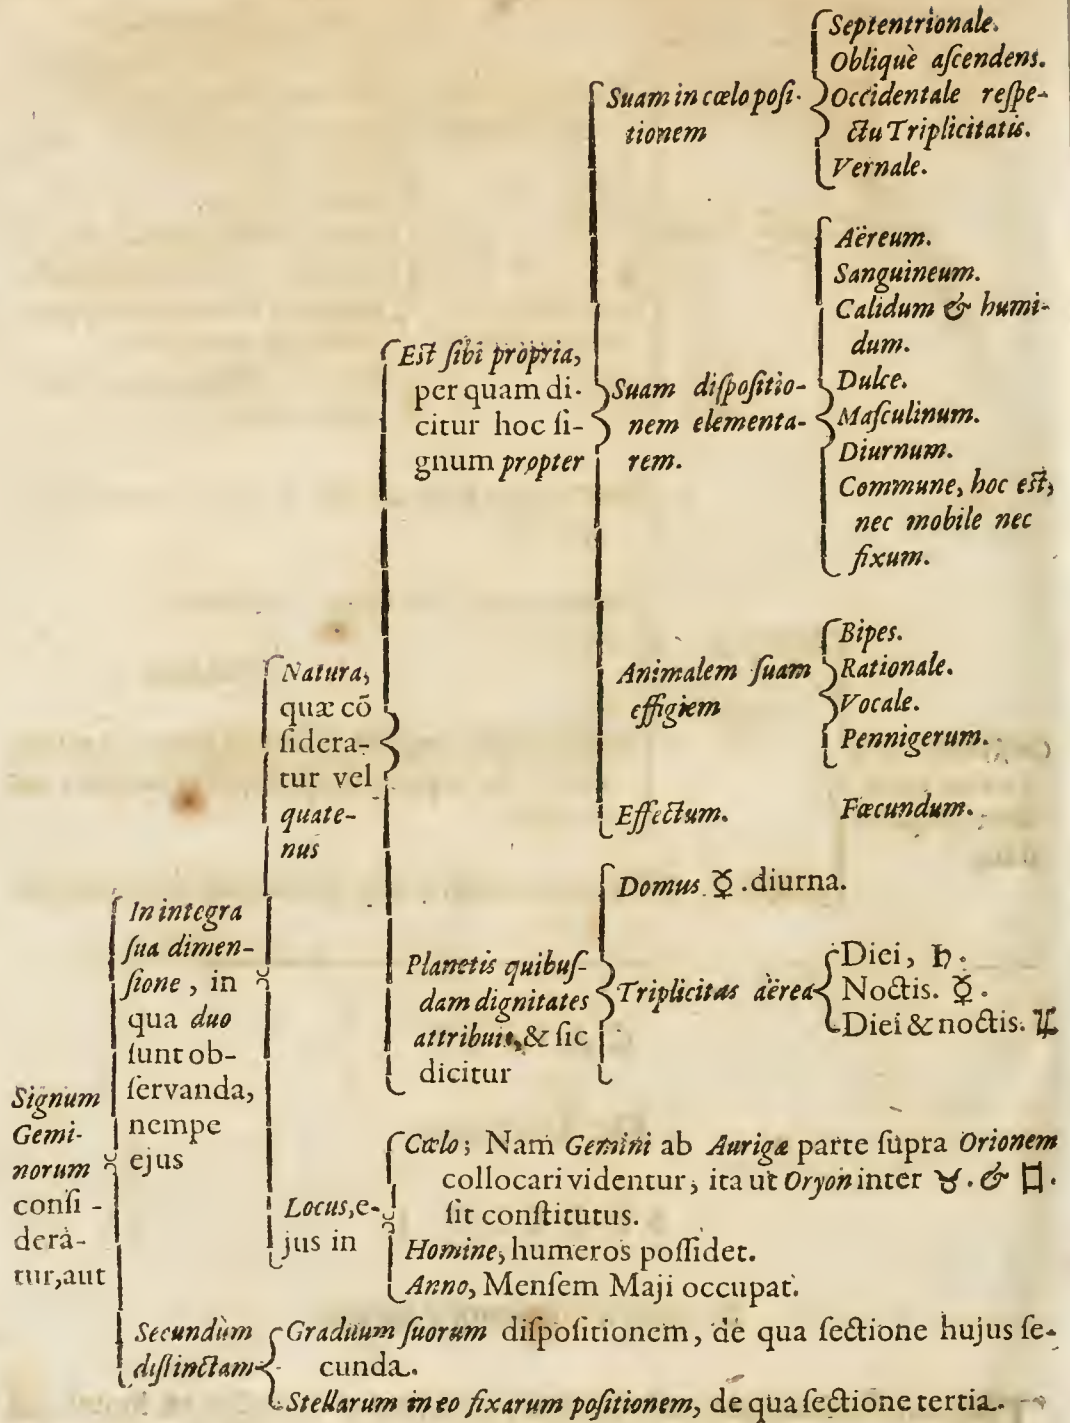 Signum
Gemi-
norum
consi-
derà-
tur, aut
In integra
ſua dimen-
ſione, in
qua duo
ſunt ob-
ſervanda,
nempe
ejus
Natura,
quæ cõ
ſidera-
tur vel
quate-
nus
Eſt ſibi propria,
per quam di-
citur hoc ſi-
gnum propter
Suam in cœlo poſi-
tionem
Septentrionale.
Obliquè aſcendens.
Occidentale reſpe-
ctu Triplicitatis.
Vernale.
Suam diſpoſitio-
nem elementa-
rem.
Aëreum.
Sanguineum.
Calidum & humi-
dum.
Dulce.
Maſculinum.
Diurnum.
Commune, hoc eſt,
nec mobile nec
fixum.
Animalem ſuam
effigiem
Bipes.
Rationale.
Vocale.
Pennigerum.
Effectum.
Fœcundum.
Planetis quibuſ-
dam dignitates
attribuit, & ſic
dicitur
Domus ☿. diurna.
Triplicitas aërea
Diei, ♄.
Noctis. ☿.
Diei & noctis. ♃
Locus, e-
jus in
Cœlo; Nam Gemini ab Aurigæ parte ſupra Orionem
collocari videntur, ita ut Oryon inter ♉. & ♊.
ſit conſtitutus.
Homine, humeros poſſidet.
Anno, Menſem Maji occupat.
Secundùm
diſtinctam
Graduum ſuorum diſpoſitionem, de qua ſectione hujus ſe-
cunda.
Stellarum in eo fixarum poſitionem, de qua ſectione tertia.